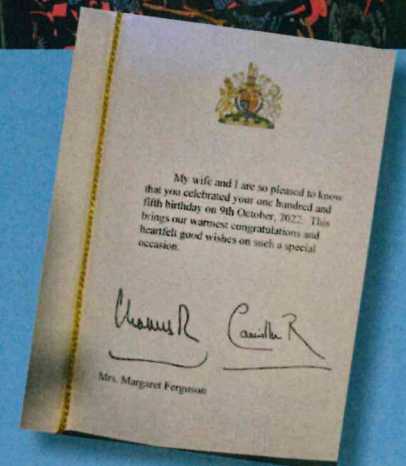 My wife and I are so pleased to know
that you celebrated your one hundred and
fifth birthday on 9th October, 2022. This
brings our warmest congratulations and
heartfelt good wishes on such a special
occasion.
Charles R Camilla R
Mrs. Margaret Ferguson